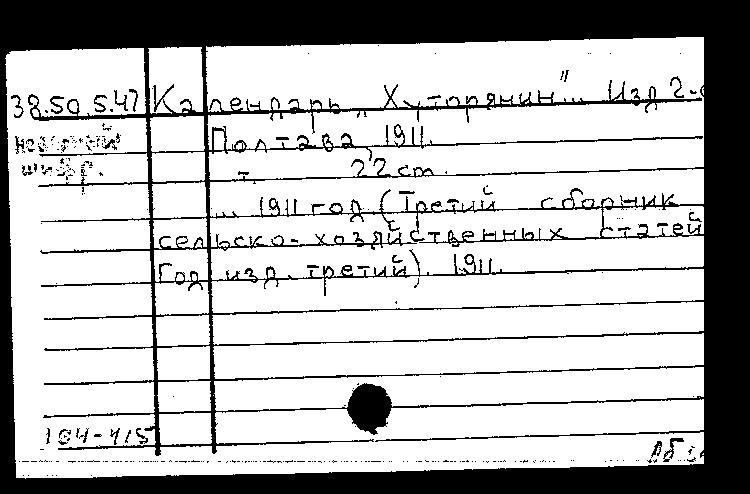 38.50.5.47 Календарь „Хуторянин"... Изд 2-
неверный Полтава, 1911.
шифр. т. 22 cm.
... 1911 год (Третий сборник
сельско-хозяйственных статей
Год изд. третий). 1911.
104-415